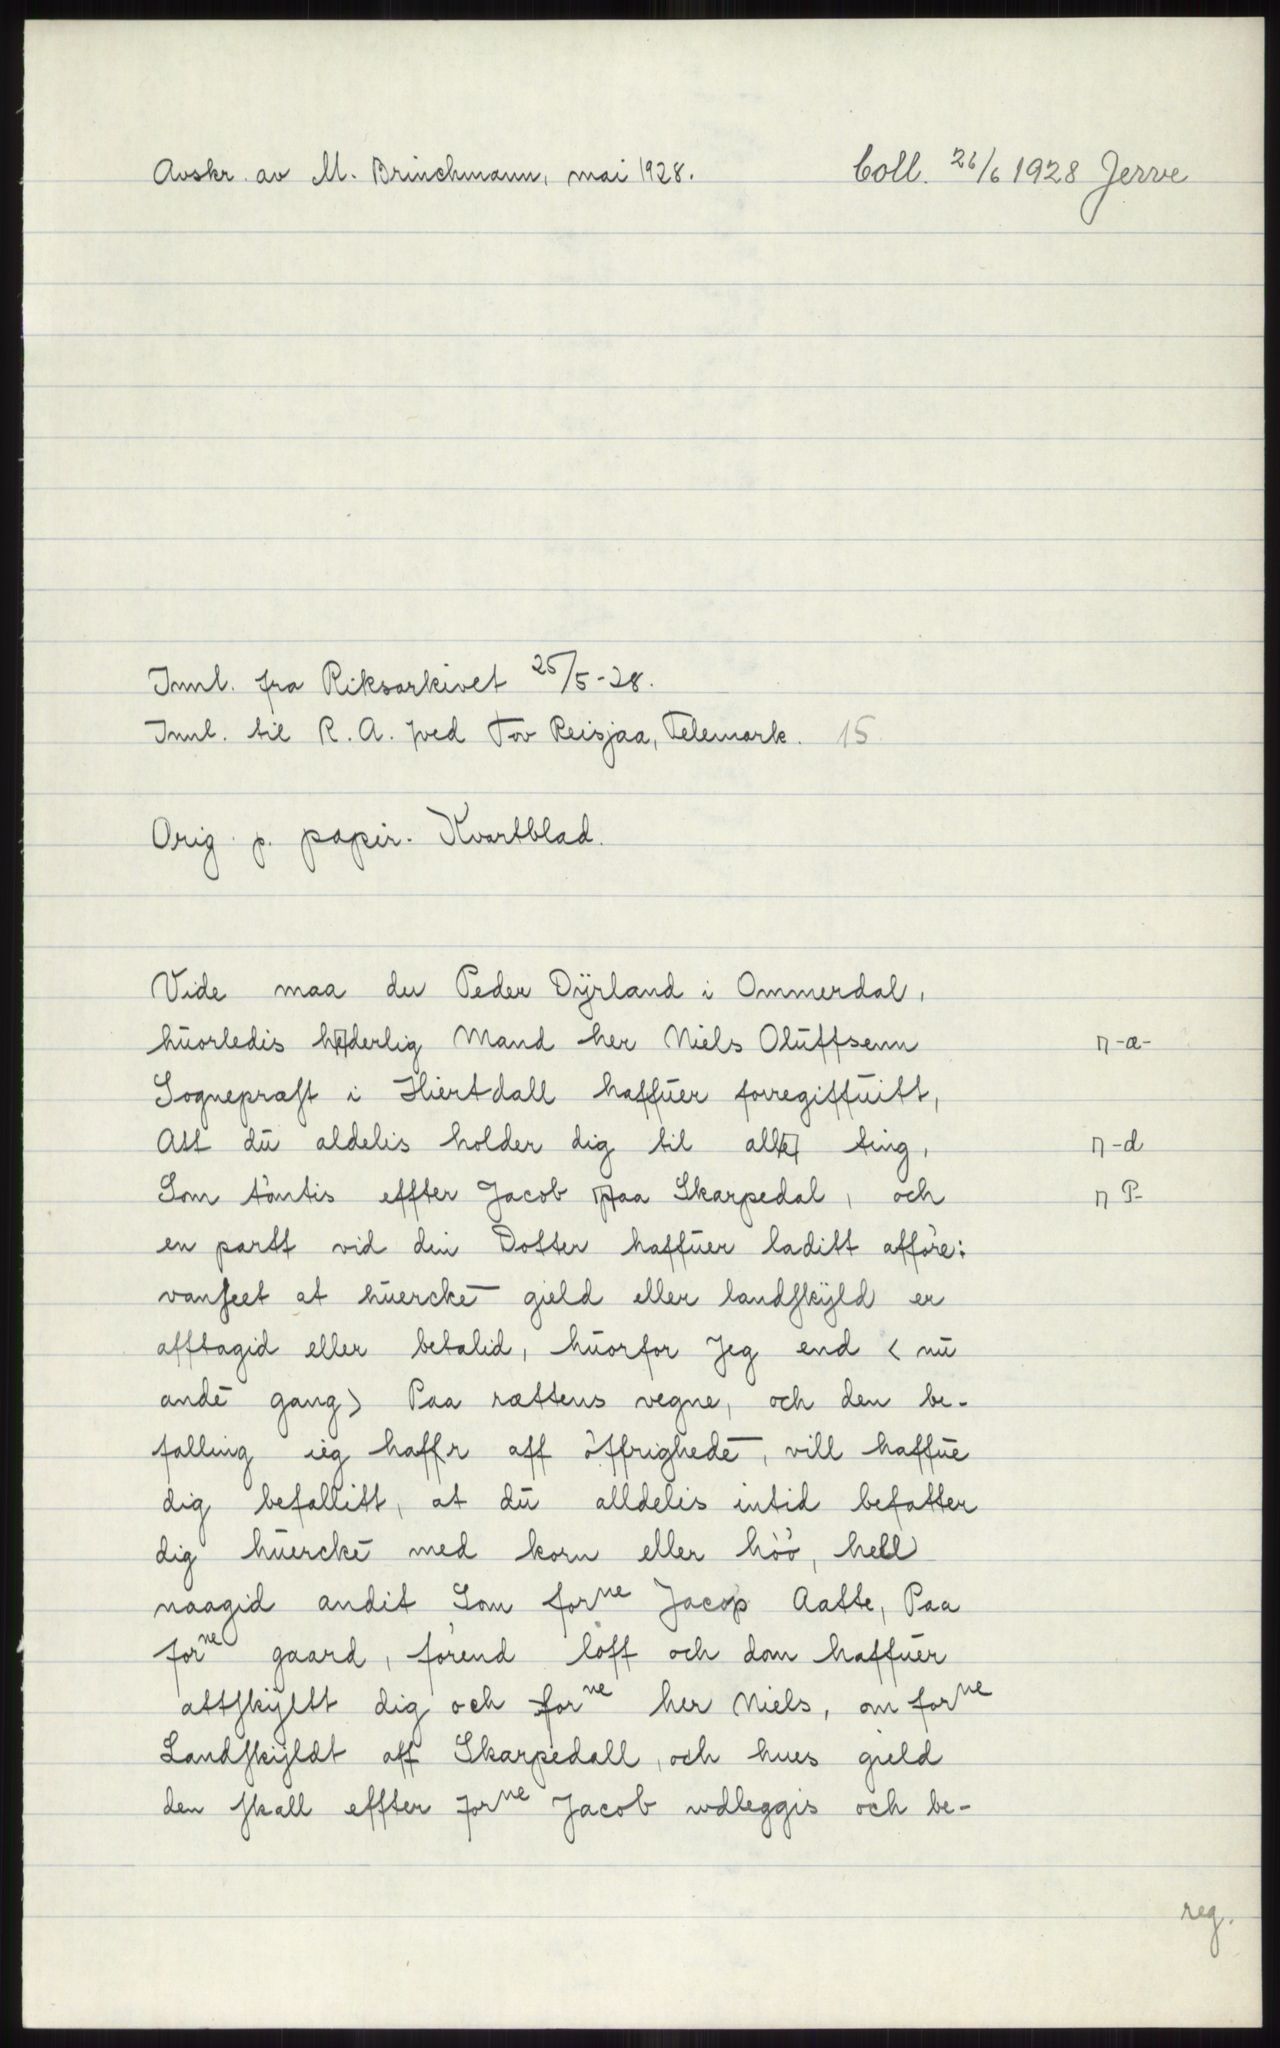 Avskr. av M. Brinchmann, mai 1928. Coll. 26/6 1928 Jerve
Innl. fra Riksarkivet 25/5-28.
Innl. til R. A. ved Tov Reisjaa, Telemark. 15
Orig. p. papir. Kvartblad.
Vide maa du Peder Dÿrland i Ommerdal,
huorledis hederlig Mand her Niels Oluffsenn ⊓-æ-
Sognepræst i Hiertdall haffuer forregiffuitt,
Att du aldelis holder dig til alle ting, ⊓-d
Som fantis effter Jacob paa Skarpedal, och ⊓ P-
en partt vid din Dotter haffuer laditt afføre:
vanseet at huercke̅ gield eller landskÿld er
afftagid eller betalid, huorfor Jeg end < nu
ande̅ gang> Paa rættens vegne, och den be-
falling ieg haffr aff öffrighede̅, vill haffue
dig befallitt, at du alldelis intid befatter
dig huercke̅ med korn eller höö, hell
naagid andit Som forne Jacop Aatte, Paa
forne gaard, förend löff och dom haffuer
attskÿltt dig och forne her Niels, om forne
Landskÿldt aff Skarpedall, och hues gield
den skall effter forne Jacob wdleggis och be-
reg.